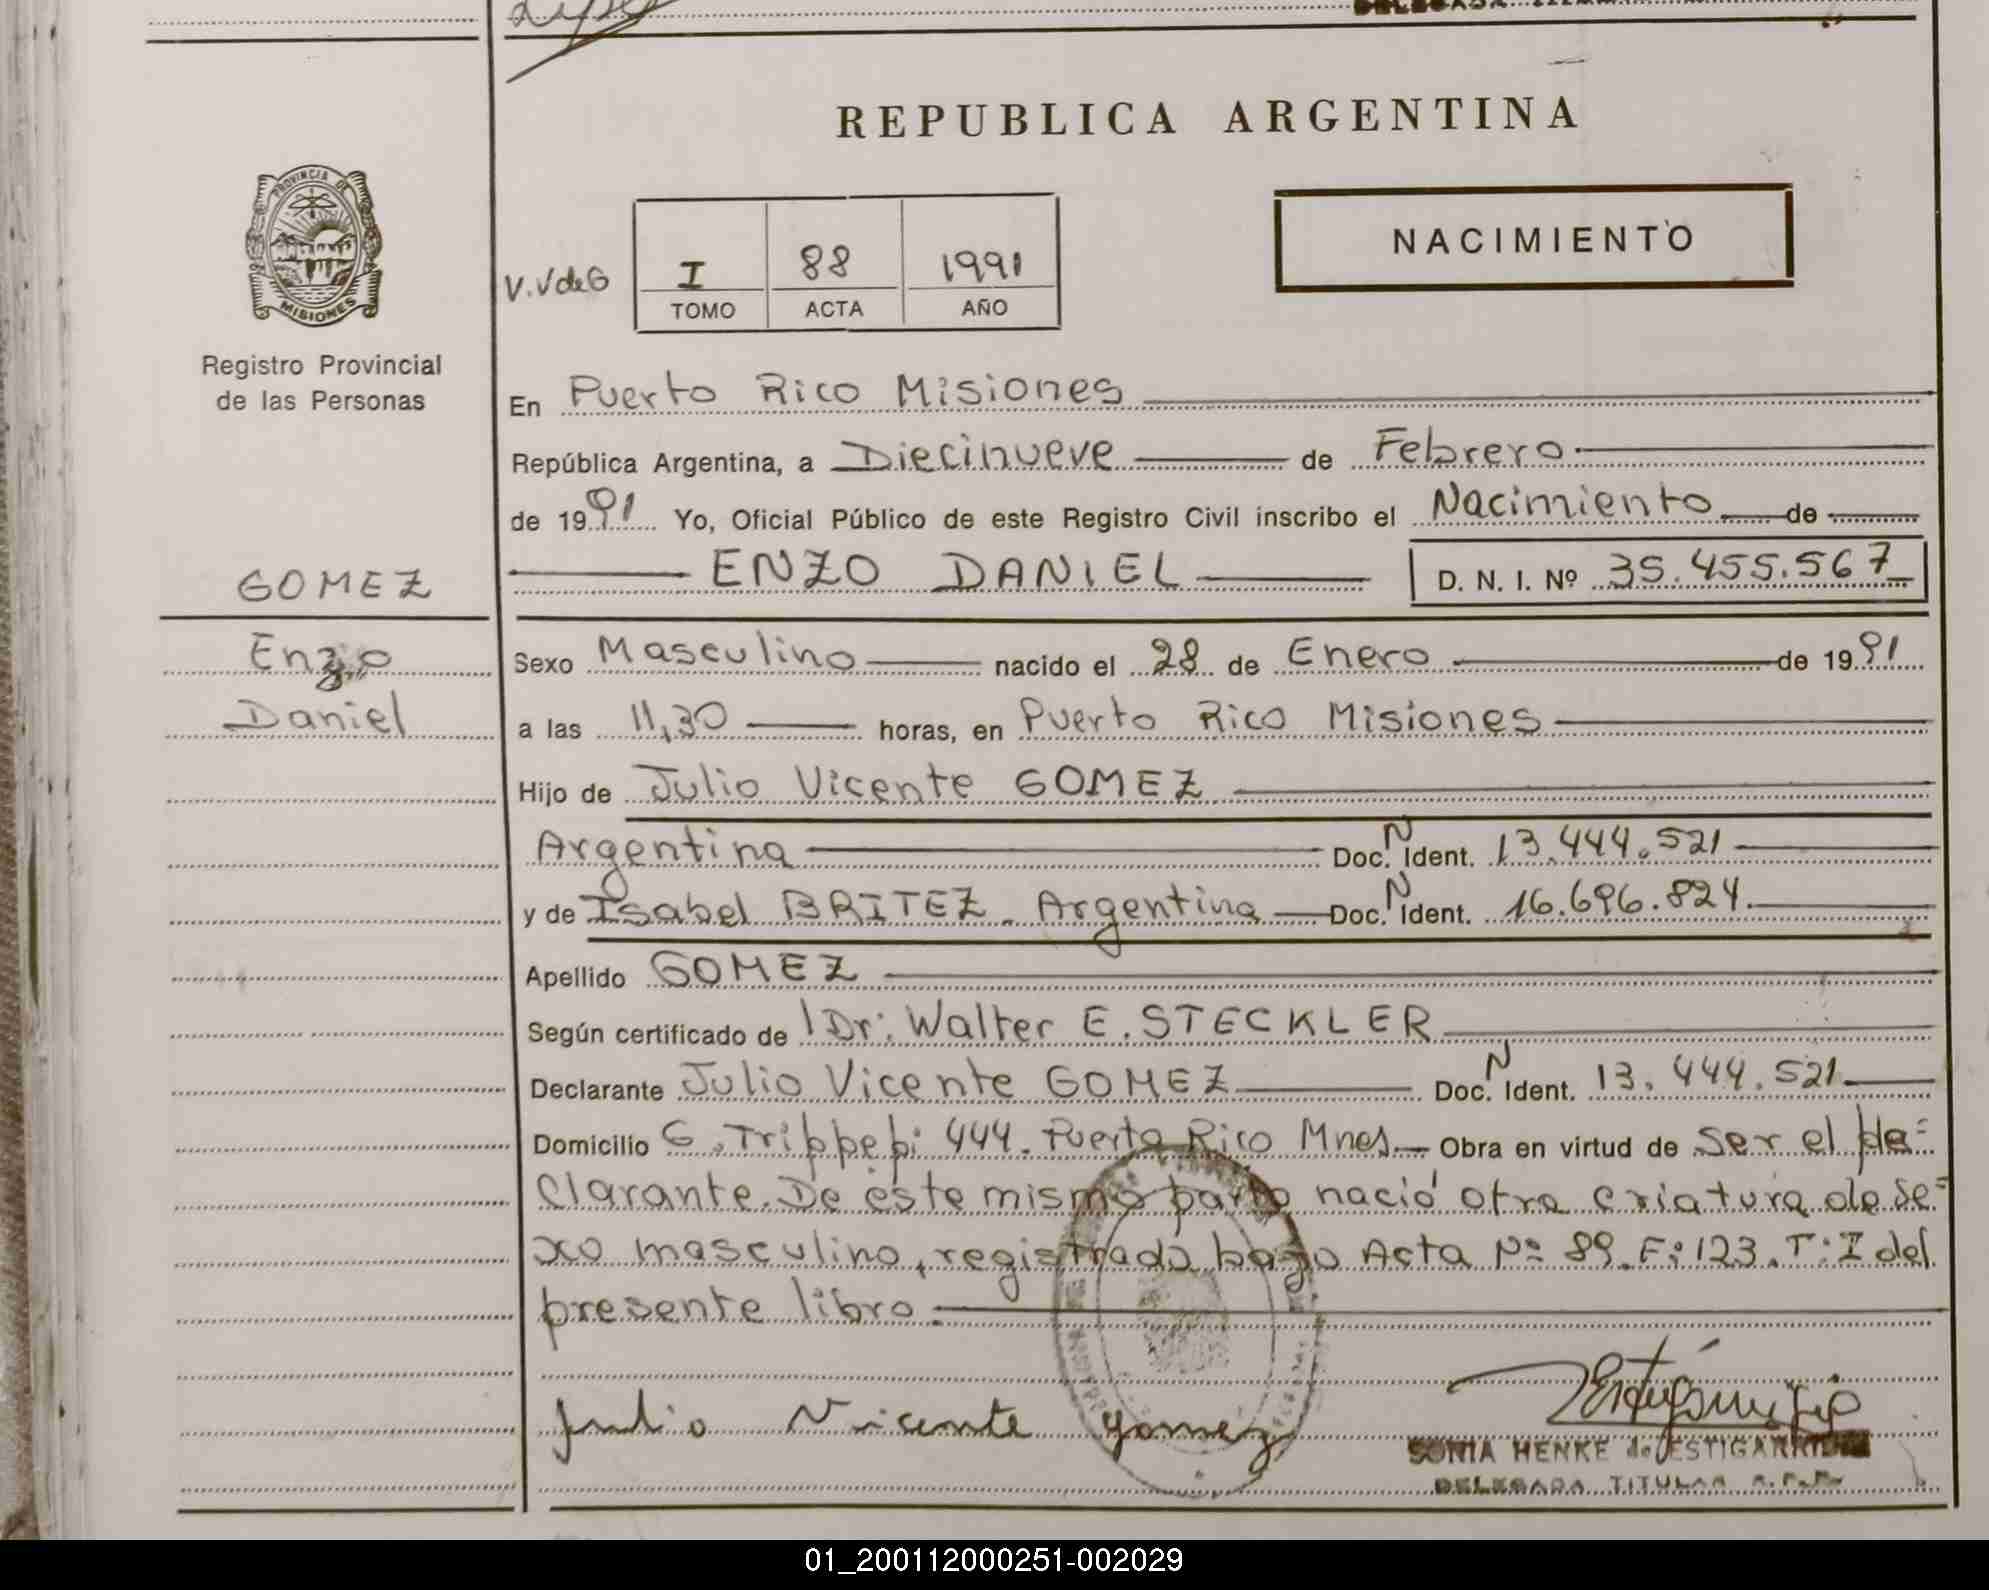 REPUBLICA ARGENTINA
PROVINCIA DE
MISIONES
Registro Provincial
de las Personas
V.V de G
I 88 1991
TOMO ACTA AÑO
NACIMIENTO
En Puerto Rico Misiones
República Argentina, a Diecinueve de Febrero
de 1991 Yo, Oficial Público de este Registro Civil inscribo el Nacimiento de
GOMEZ
ENZO DANIEL D. N. I. Nº 35.455.567
Enzo
Daniel
Sexo Masculino nacido el 28 de Enero de 1991
a las 11,30 horas, en Puerto Rico Misiones
Hijo de Julio Vicente GOMEZ
Argentina Doc. N Ident. 13.444.521
y de Isabel BRITEZ. Argentina Doc. N Ident. 16.696.824.
Apellido GOMEZ
Según certificado de Dr: Walter E. STECKLER
Declarante Julio Vicente GOMEZ Doc. N Ident. 13.444.521
Domicilio G. Trippepi 444. Puerto Rico Mnes. Obra en virtud de ser el de=
clarante. De este mismo parto nació otra criatura de se=
xo masculino, registrado bajo Acta Nº 89. F: 123. T: I del
presente libro.
Julio Vicente Gomez
SONIA HENKE de ESTIGARRIBIA
DELEGADA TITULAR R.P.P.
01_200112000251-002029